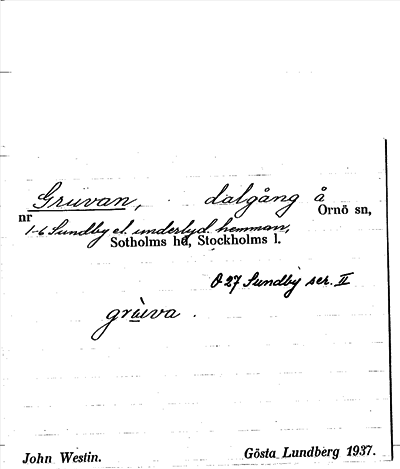 Gruvan, dalgång å
nr Ornö sn,
1-6 Sundby el. underlyd. hemman,
Sotholms hd, Stockholms l.
O 27 Sundby ser. II
grùva.
John Westin. Gösta Lundberg 1937.